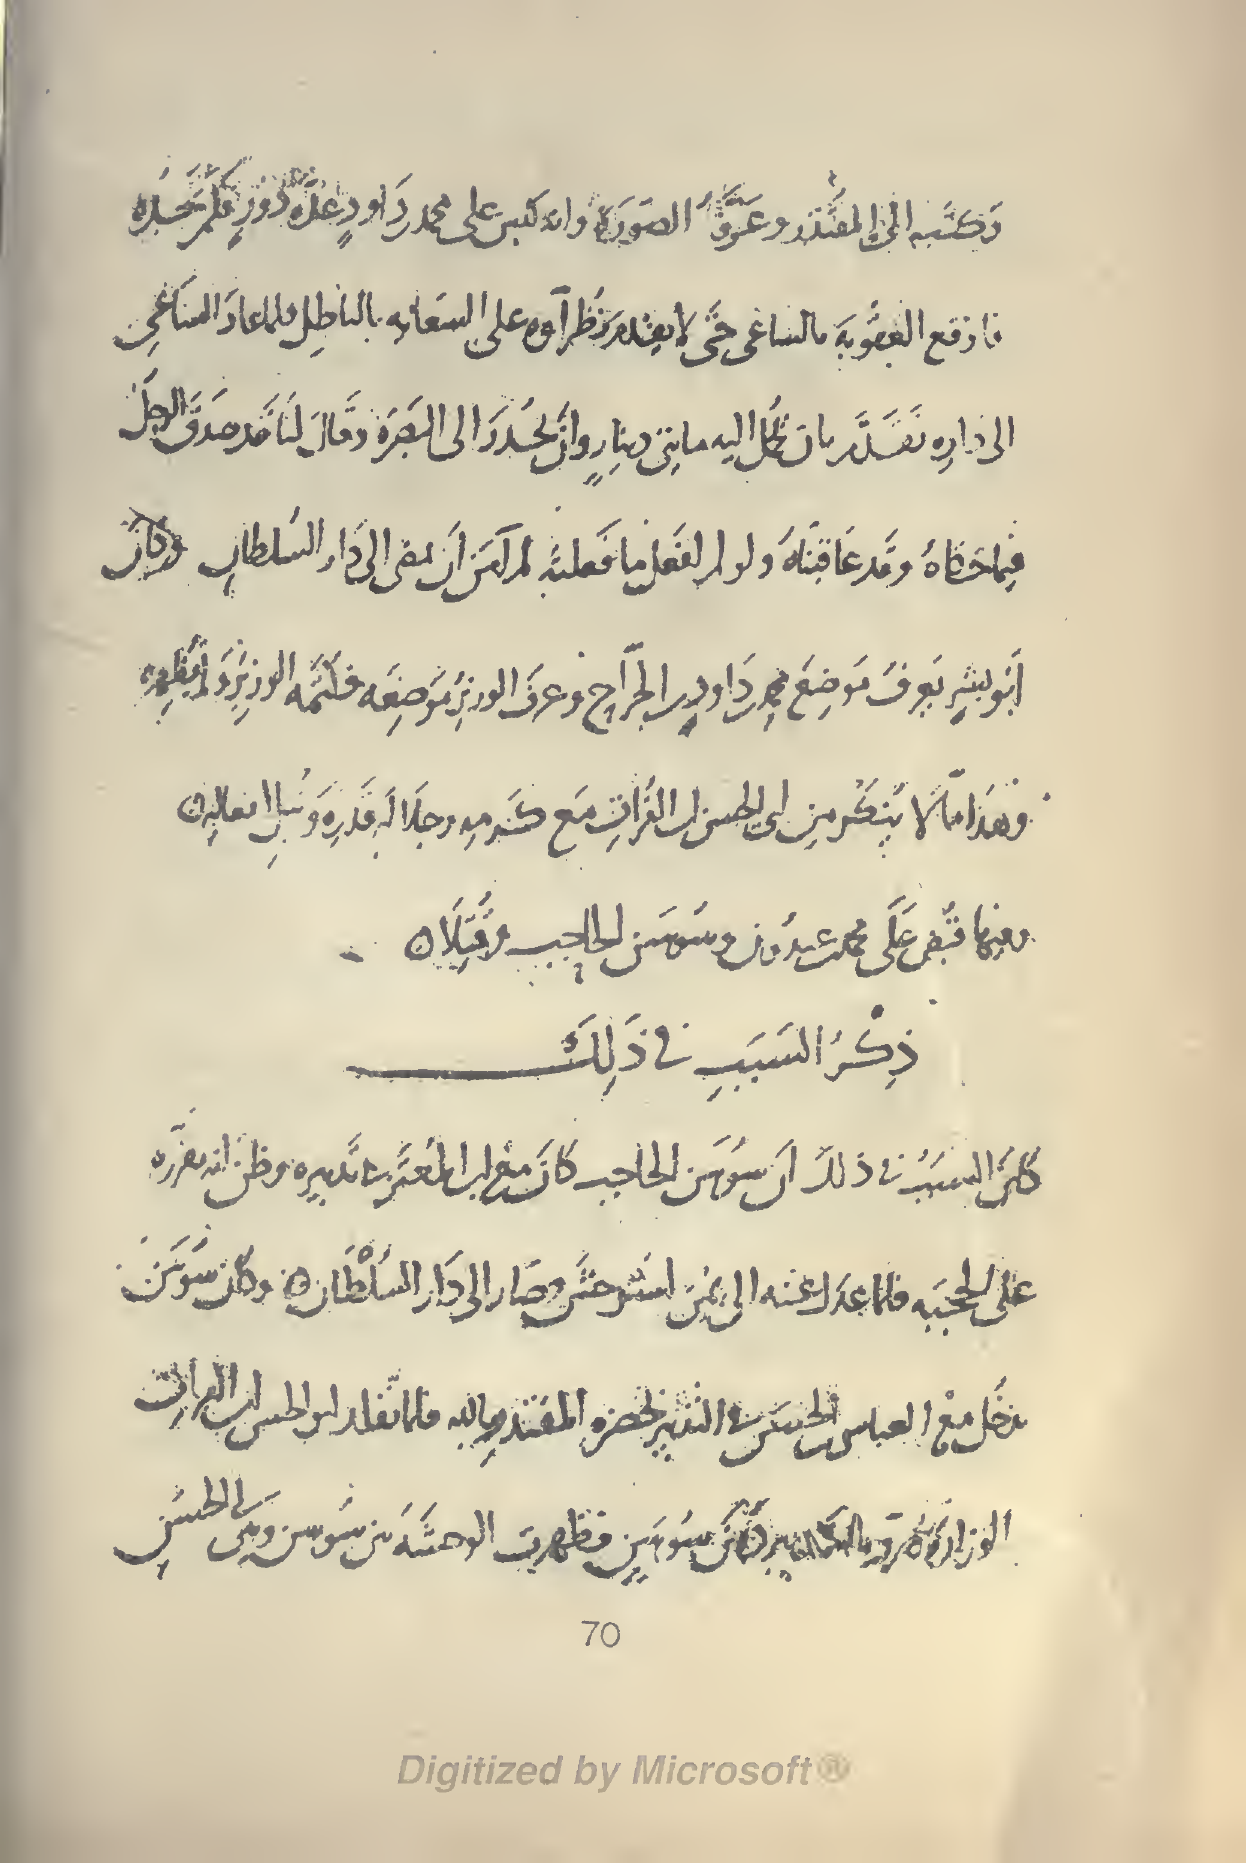 وكتب الى المقتدر وعرّفه الصورة وانه كبس على محمد بن داود عدّة دور فلم يجده
فاوقع العقوبة بالساعى حتّى لا يقدم نظراؤه على السعاية بالباطل فلما عاد الساعى
الى داره تقدّم بان يحمل اليه مايتى دينار وان يحدر الى البصرة وقال لنا قد صدق الرجل
فيما حكاه وقد عاقبناه ولو لم نفعل ما فعلته لم آمن ان يمضى الى دار السلطان وكان
ابو بشر يعرف موضع محمد بن داود بن الجرّاح وعرف الوزير موضعه فكتمه الوزير ولم يظهره
وهذا ممّا لا يُنكر من ابى الحسن ابن الفرات مع كرمه وجلالة قدره ونبل افعاله
وفيها قُبض على محمد بن عبدون وسوسن الحاجب وقُتِلا
ذِكْرُ السَبَبِ فى ذَلِكَ
كان السبب فى ذلك ان سوسن الحاجب كان مع ابن المعتز فى تدبيره وظنّ انه يقرّه
على الحجبه فلما عدل عنه الى يمن استوحش وصار الى دار السلطان وكان سوسن
يدخل مع العباس بن الحسن فى التدبير بحضرة المقتدر بالله فلما تقلد ابو الحسن ابن الفرات
الوزارة تفرّد بالتدبير دون سوسن فظهرت الوحشة بين سوسن وبين ابى الحسن
70
Digitized by Microsoft®